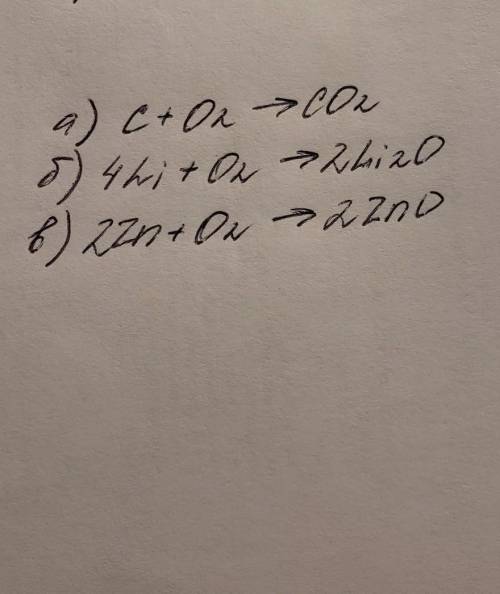 а) C + O2 → CO2
б) 4Li + O2 → 2Li2O
в) 2Zn + O2 → 2ZnO